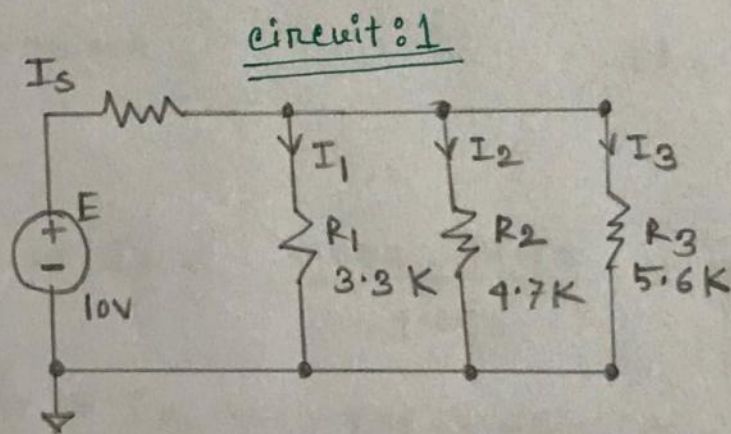 circuit:1
Is
I1 I2 I3
E
+
-
10V
R1
3.3 K
R2
4.7K
R3
5.6K